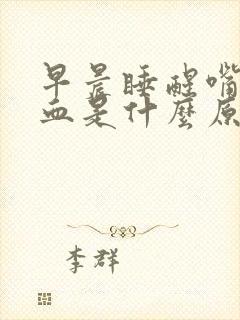 早晨睡醒嘴
血是什麼原
李群